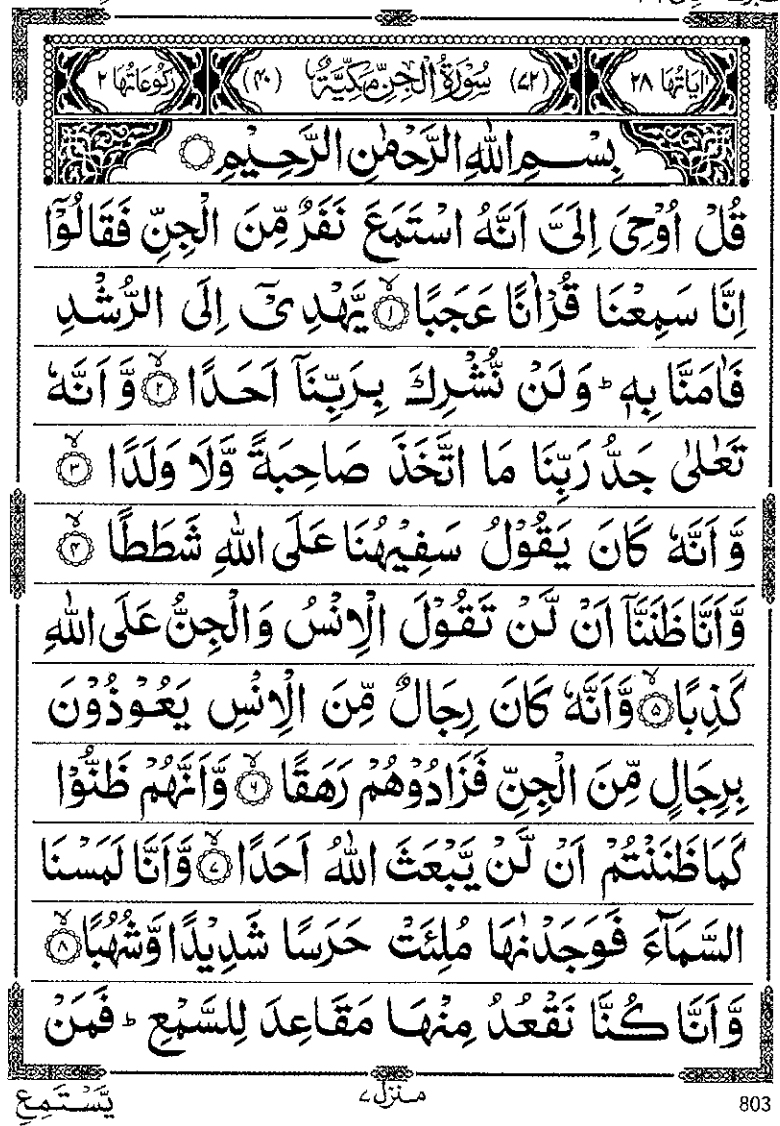 اٰیَاتُهَا ۲۸ (۷۲) سُوْرَةُ الْجِنِّ مَكِّیَّةٌ (۴۰) رُكُوْعَاتُهَا ۲
بِسْمِ اللهِ الرَّحْمٰنِ الرَّحِیْمِ
قُلْ اُوْحِیَ اِلَیَّ اَنَّهُ اسْتَمَعَ نَفَرٌ مِّنَ الْجِنِّ فَقَالُوْۤا
اِنَّا سَمِعْنَا قُرْاٰنًا عَجَبًا ۙ‏﴿۱﴾ یَّهْدِیْۤ اِلَی الرُّشْدِ
فَاٰمَنَّا بِهٖ ؕ وَلَنْ نُّشْرِكَ بِرَبِّنَاۤ اَحَدًا ۙ‏﴿۲﴾ وَّ اَنَّهٗ
تَعٰلٰی جَدُّ رَبِّنَا مَا اتَّخَذَ صَاحِبَةً وَّلَا وَلَدًا ۙ‏﴿۳﴾
وَّ اَنَّهٗ كَانَ یَقُوْلُ سَفِیْهُنَا عَلَی اللهِ شَطَطًا ۙ‏﴿۴﴾
وَّاَنَّا ظَنَنَّاۤ اَنْ لَّنْ تَقُوْلَ الْاِنْسُ وَالْجِنُّ عَلَی اللهِ
كَذِبًا ۙ‏﴿۵﴾ وَّاَنَّهٗ كَانَ رِجَالٌ مِّنَ الْاِنْسِ یَعُوْذُوْنَ
بِرِجَالٍ مِّنَ الْجِنِّ فَزَادُوْهُمْ رَهَقًا ۙ‏﴿۶﴾ وَّاَنَّهُمْ ظَنُّوْا
كَمَا ظَنَنْتُمْ اَنْ لَّنْ یَّبْعَثَ اللهُ اَحَدًا ۙ‏﴿۷﴾ وَّاَنَّا لَمَسْنَا
السَّمَآءَ فَوَجَدْنٰهَا مُلِئَتْ حَرَسًا شَدِیْدًا وَّشُهُبًا ۙ‏﴿۸﴾
وَّاَنَّا كُنَّا نَقْعُدُ مِنْهَا مَقَاعِدَ لِلسَّمْعِ ؕ فَمَنْ
803 منزل ۷ یَّسْتَمِعِ